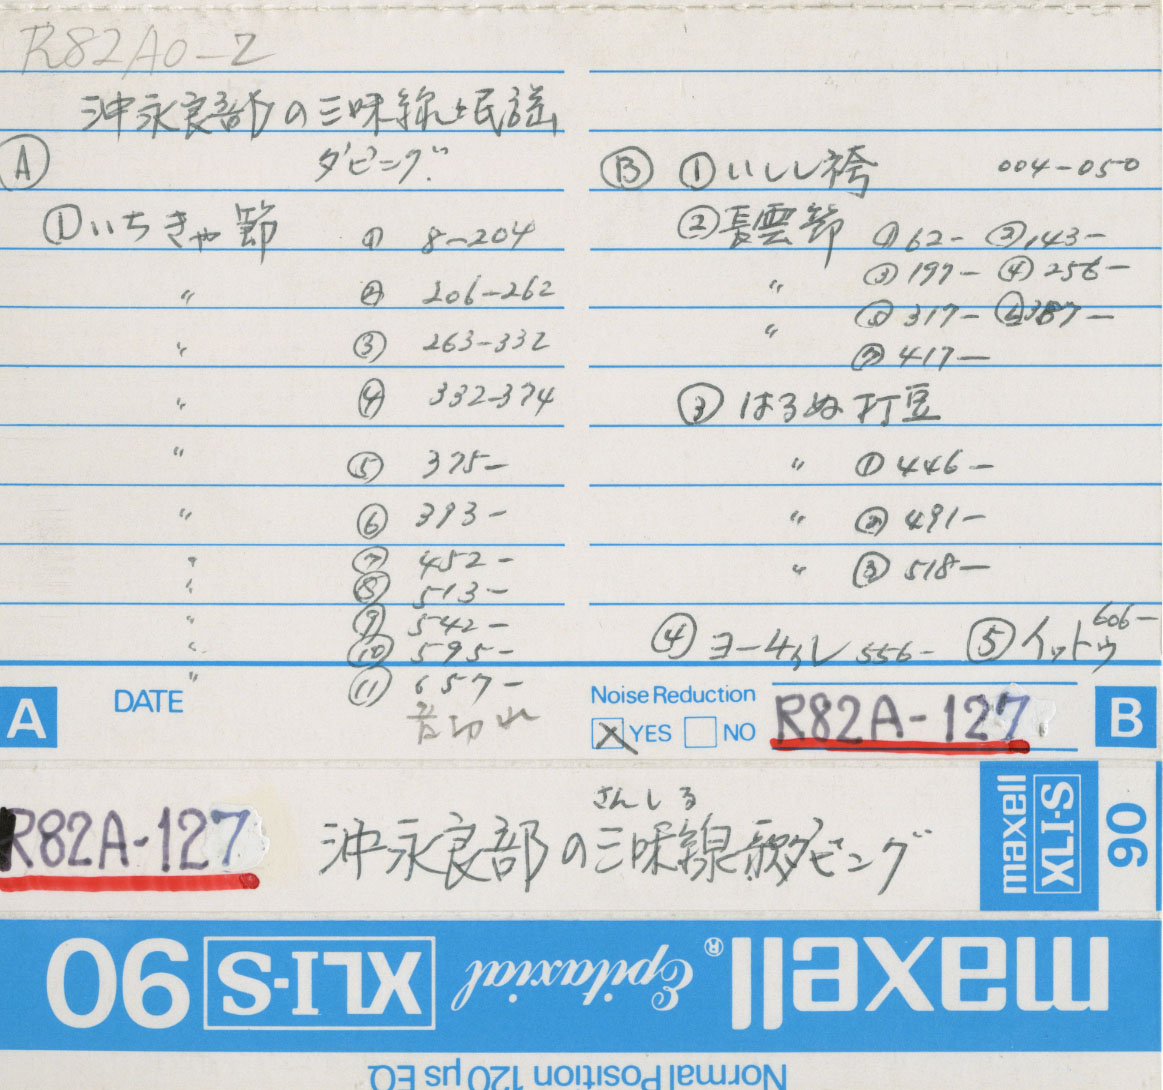 R82A0-2
沖永良部の三味線と民謡
ダビング
Ⓐ
①いちきゃ節 ① 8-204
〃 ② 206-262
〃 ③ 263-332
〃 ④ 332-374
〃 ⑤ 375-
〃 ⑥ 393-
〃 ⑦ 452-
〃 ⑧ 513-
〃 ⑨ 542-
〃 ⑩ 595-
〃 ⑪ 657-
音切れ
A DATE
Ⓑ ①いしし袴 004-050
②長雲節 ①62- ②143-
〃 ③197- ④256-
〃 ⑤317- ⑥387-
⑦417-
③ はるぬ打豆
〃 ①446-
〃 ②491-
〃 ③518-
④ ヨーテル 556- ⑤イットゥ 606-
Noise Reduction
YES NO
R82A-127
B
R82A-127
さんしる
沖永良部の三味線 ダビング
maxell XLI-S 90
maxell Epitaxial® XLI-S 90
Normal Position 120μs EQ